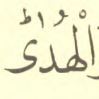 ٱلْهُدَىٰ